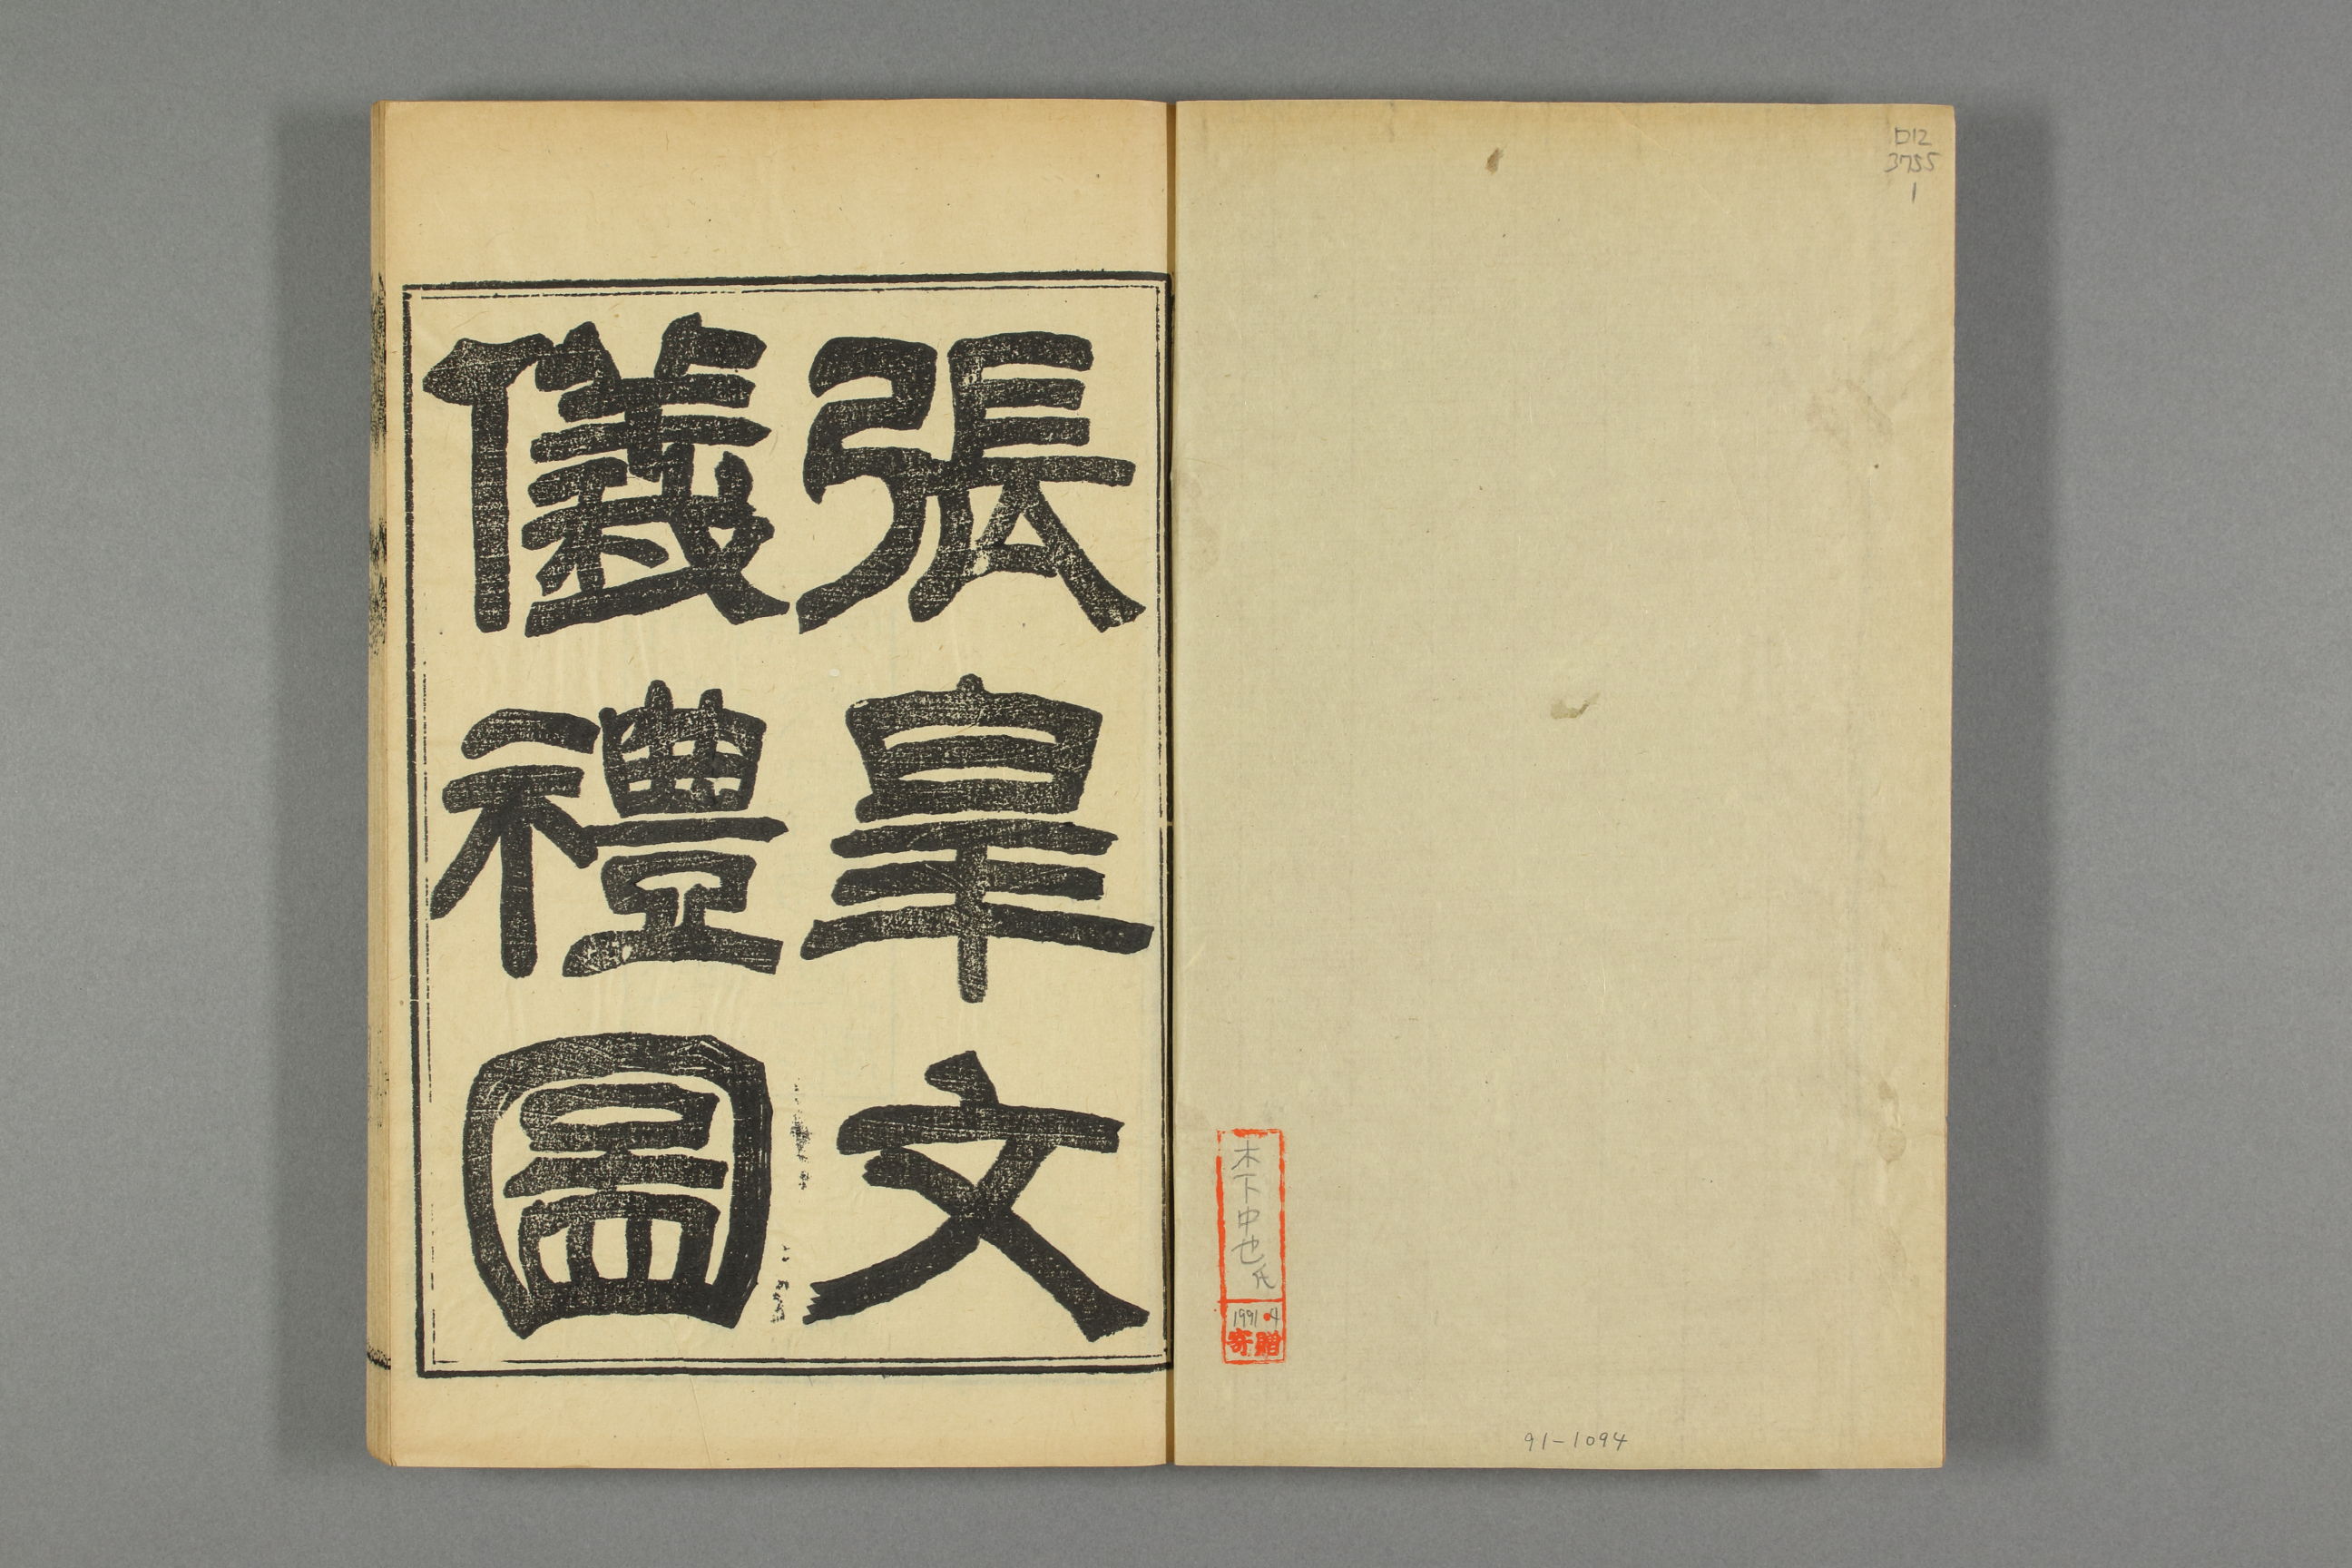 D12
3755
1
木下中也氏
1991・4
寄贈
91-1094
張皐文
儀禮圖